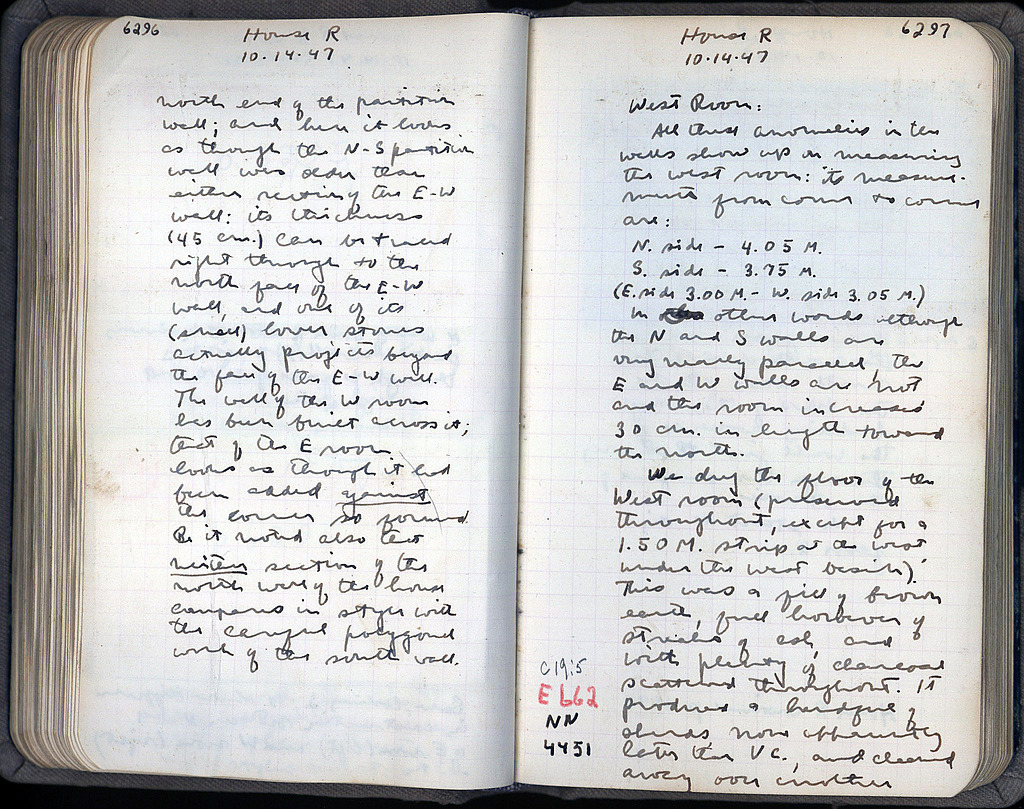 6296
House R
10.14.47
north end of the partition
wall; and here it looks
as though the N-S partition
wall was older than
either section of the E-W
wall: its thickness
(45 cm.) can be traced
right through to the
north face of the E-W
wall, and one of its
(small) lower stones
actually projects beyond
the face of the E-W wall.
The wall of the W room
has been built across it;
that of the E room
looks as though it had
been added against
the corner so formed.
Be it noted also that
neither section of the
north wall of the house
compares in style with
the careful polygonal
work of the south wall.
6297
House R
10.14.47
West Room:
All these anomalies in the
walls show up on measuring
the west room: its measure-
ments from corner to corner
are:
N. side - 4.05 M.
S. side - 3.75 M.
(E. side 3.00 M. - W. side 3.05 M.)
In other words although
the N and S walls are
very nearly parallel, the
E and W walls are not
and the room increases
30 cm. in length toward
the north.
We dug the floor of the
West room (preserved
throughout, except for a
1.50 M. strip at the west
under the west basin).
This was a fill of brown
earth, full however of
streaks of ash, and
with plenty of charcoal
scattered throughout. It
produced a handful of
sherds none apparently
later than V c., and cleared
away over another
C 19:5
E 662
NN
4451